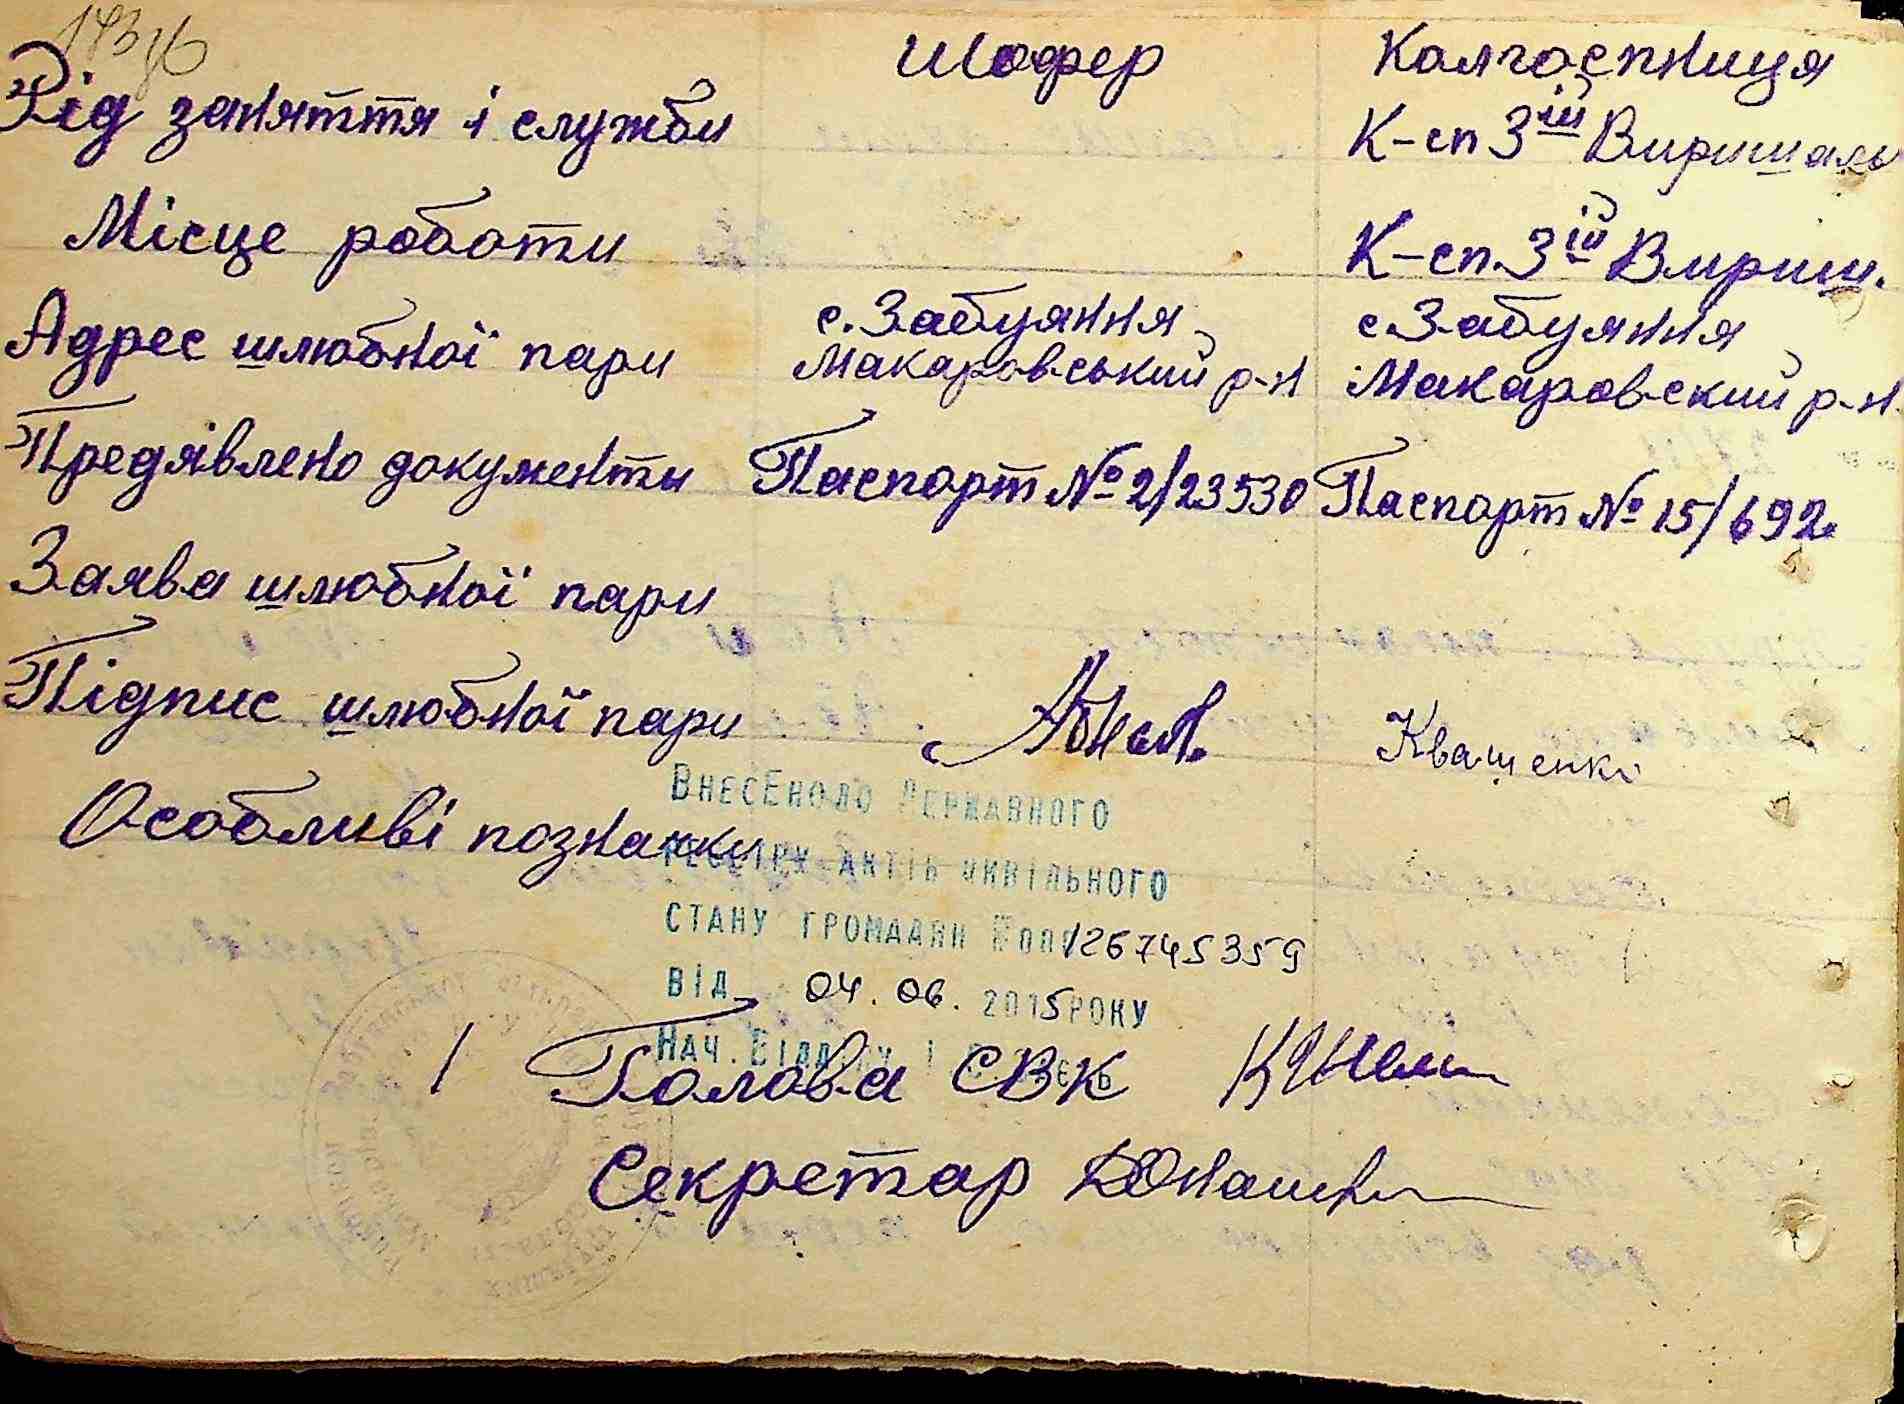 Шофер Колгоспниця
Рід заняття і служби К-сп 3ій Вирішаль
Місце роботи К-сп. 3ій Виріш.
с. Забуяння с. Забуяння
Адрес шлюбної пари Макаровський р-н Макаровский р-н
Предявлено документи Паспорт № 2/23530 Паспорт № 15/692.
Заява шлюбної пари
Підпис шлюбної пари Кващенко
ВНЕСЕНО ДО ДЕРЖАВНОГО
Особливі познаки
РЕЄСТРУ АКТІВ ЦИВІЛЬНОГО
СТАНУ ГРОМАДЯН 126745359
ВІД 04. 06. 2015 РОКУ
НАЧ.
Голова СВК
Секретар